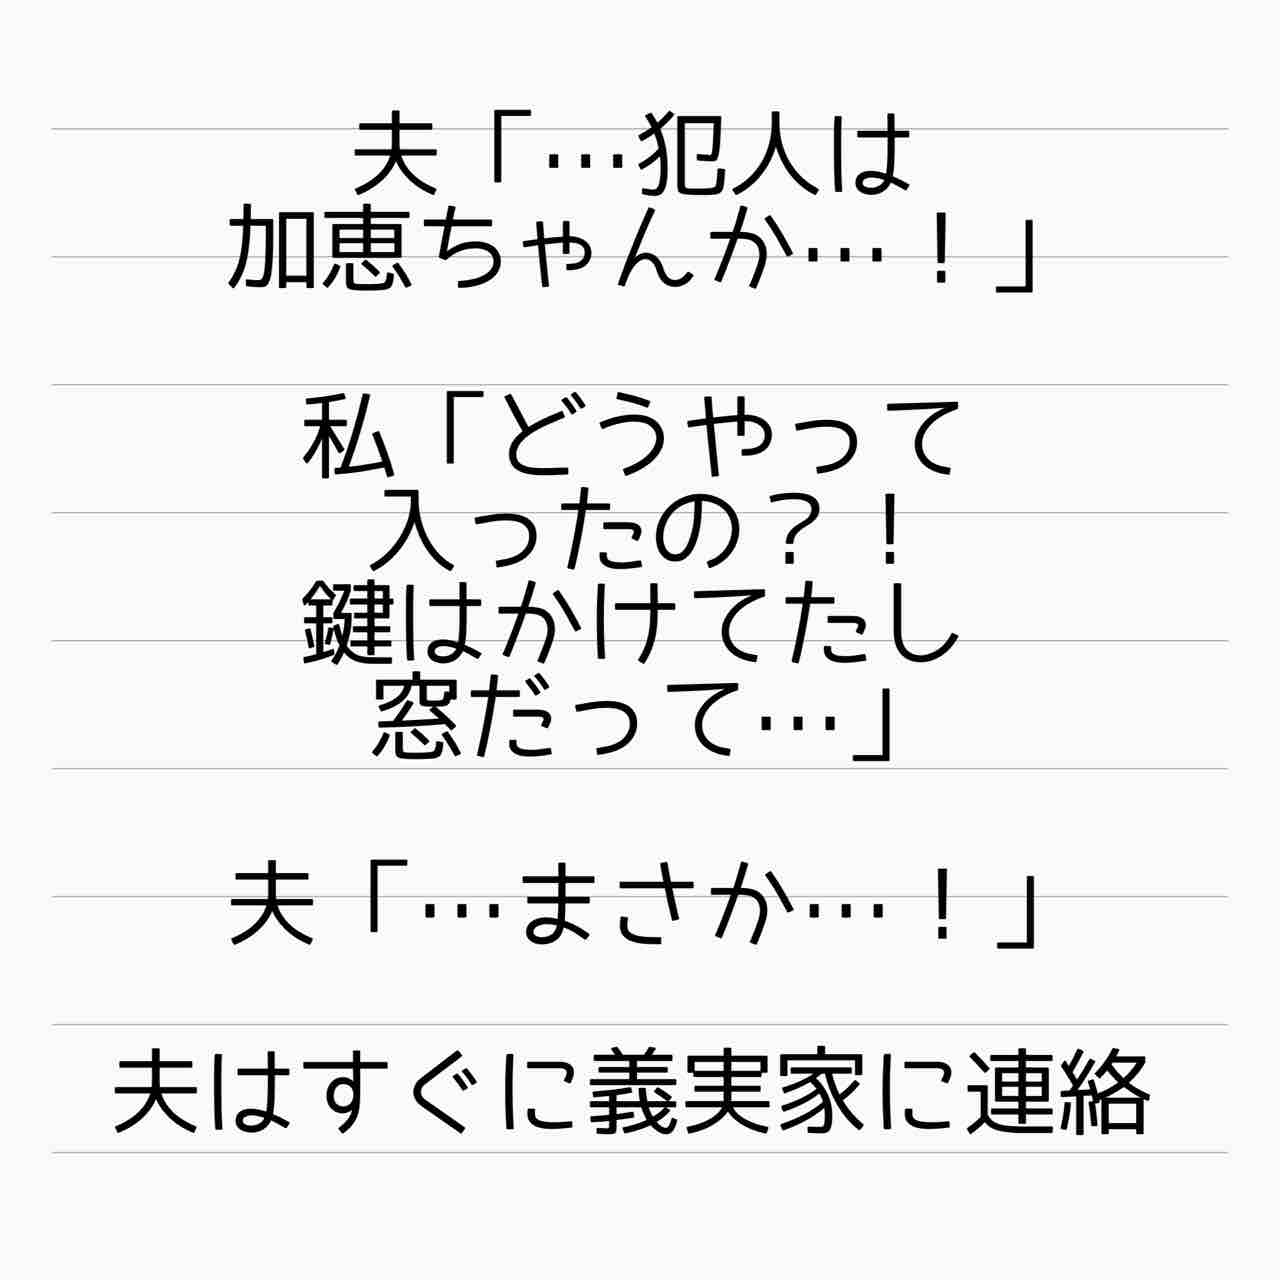 夫「…犯人は
加恵ちゃんか…！」
私「どうやって
入ったの？！
鍵はかけてたし
窓だって…」
夫「…まさか…！」
夫はすぐに義実家に連絡